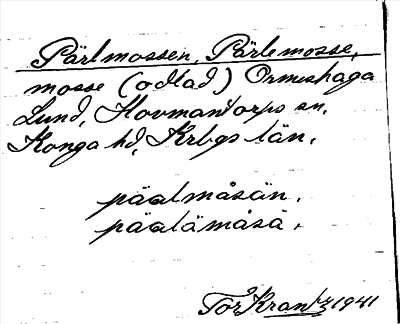 Pärlmossen, Pärlemosse,
mosse (odlad) Ormeshaga
Lund, Hovmantorps sn,
Konga hd, Krbgs län.
päälmåsän.
päälämåsä.
Tor Krantz 1941